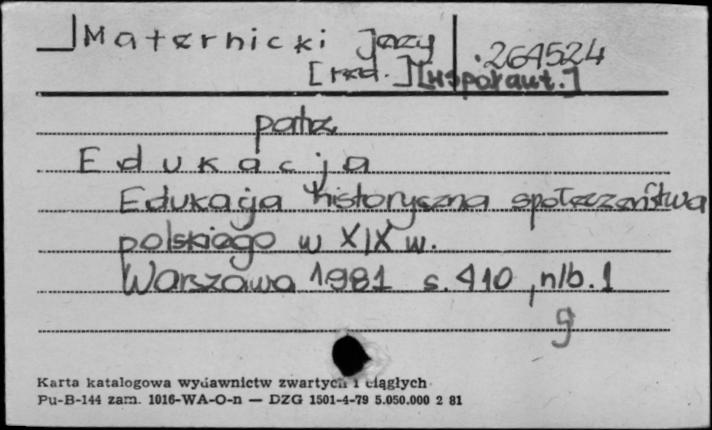 Maternicki Jerzy 261524
[red.] [współaut.]
patrz
Edukacja
Edukacja historyczna społeczeństwa
polskiego w XIX w.
Warszawa 1981 s. 410, nlb. 1
g
Karta katalogowa wydawnictw zwartych i ciągłych
Pu-B-144 zam. 1016-WA-O-n — DZG 1501-4-79 5.050.000 2 81